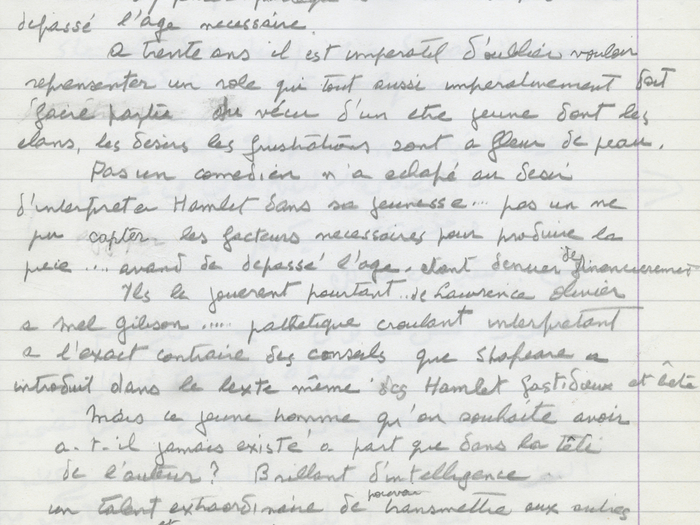 depassé l'age necessaire.
A trente ans il est imperatif d'oublier vouloir
representer un role qui tout aussi imperativement doit
faire partie du vécu d'un etre jeune dont les
elans, les desirs les frustrations sont a fleur de peau.
Pas un comedien n'a echapé au desir
d'interpreter Hamlet dans sa jeunesse... pas un ne
pu capter les facteurs necessaires pour produire la
.... avand de depassé l'age. etant denuer de financierement
Ils le jouerent pourtant.. de Lawrence Olivier
a Mel Gibson ..... pathetique croulant interpretant
a l'exact contraire des conseils que Shapeare a
introduit dans le texte même des Hamlet fastidieux et
Mais ce jeune homme qu'on souhaite avoir
a-t-il jamais existé a part que dans la têti
de l'auteur? Brillant d'intelligence
un talent extraordinaire de pouvoir transmettre aux autres
et